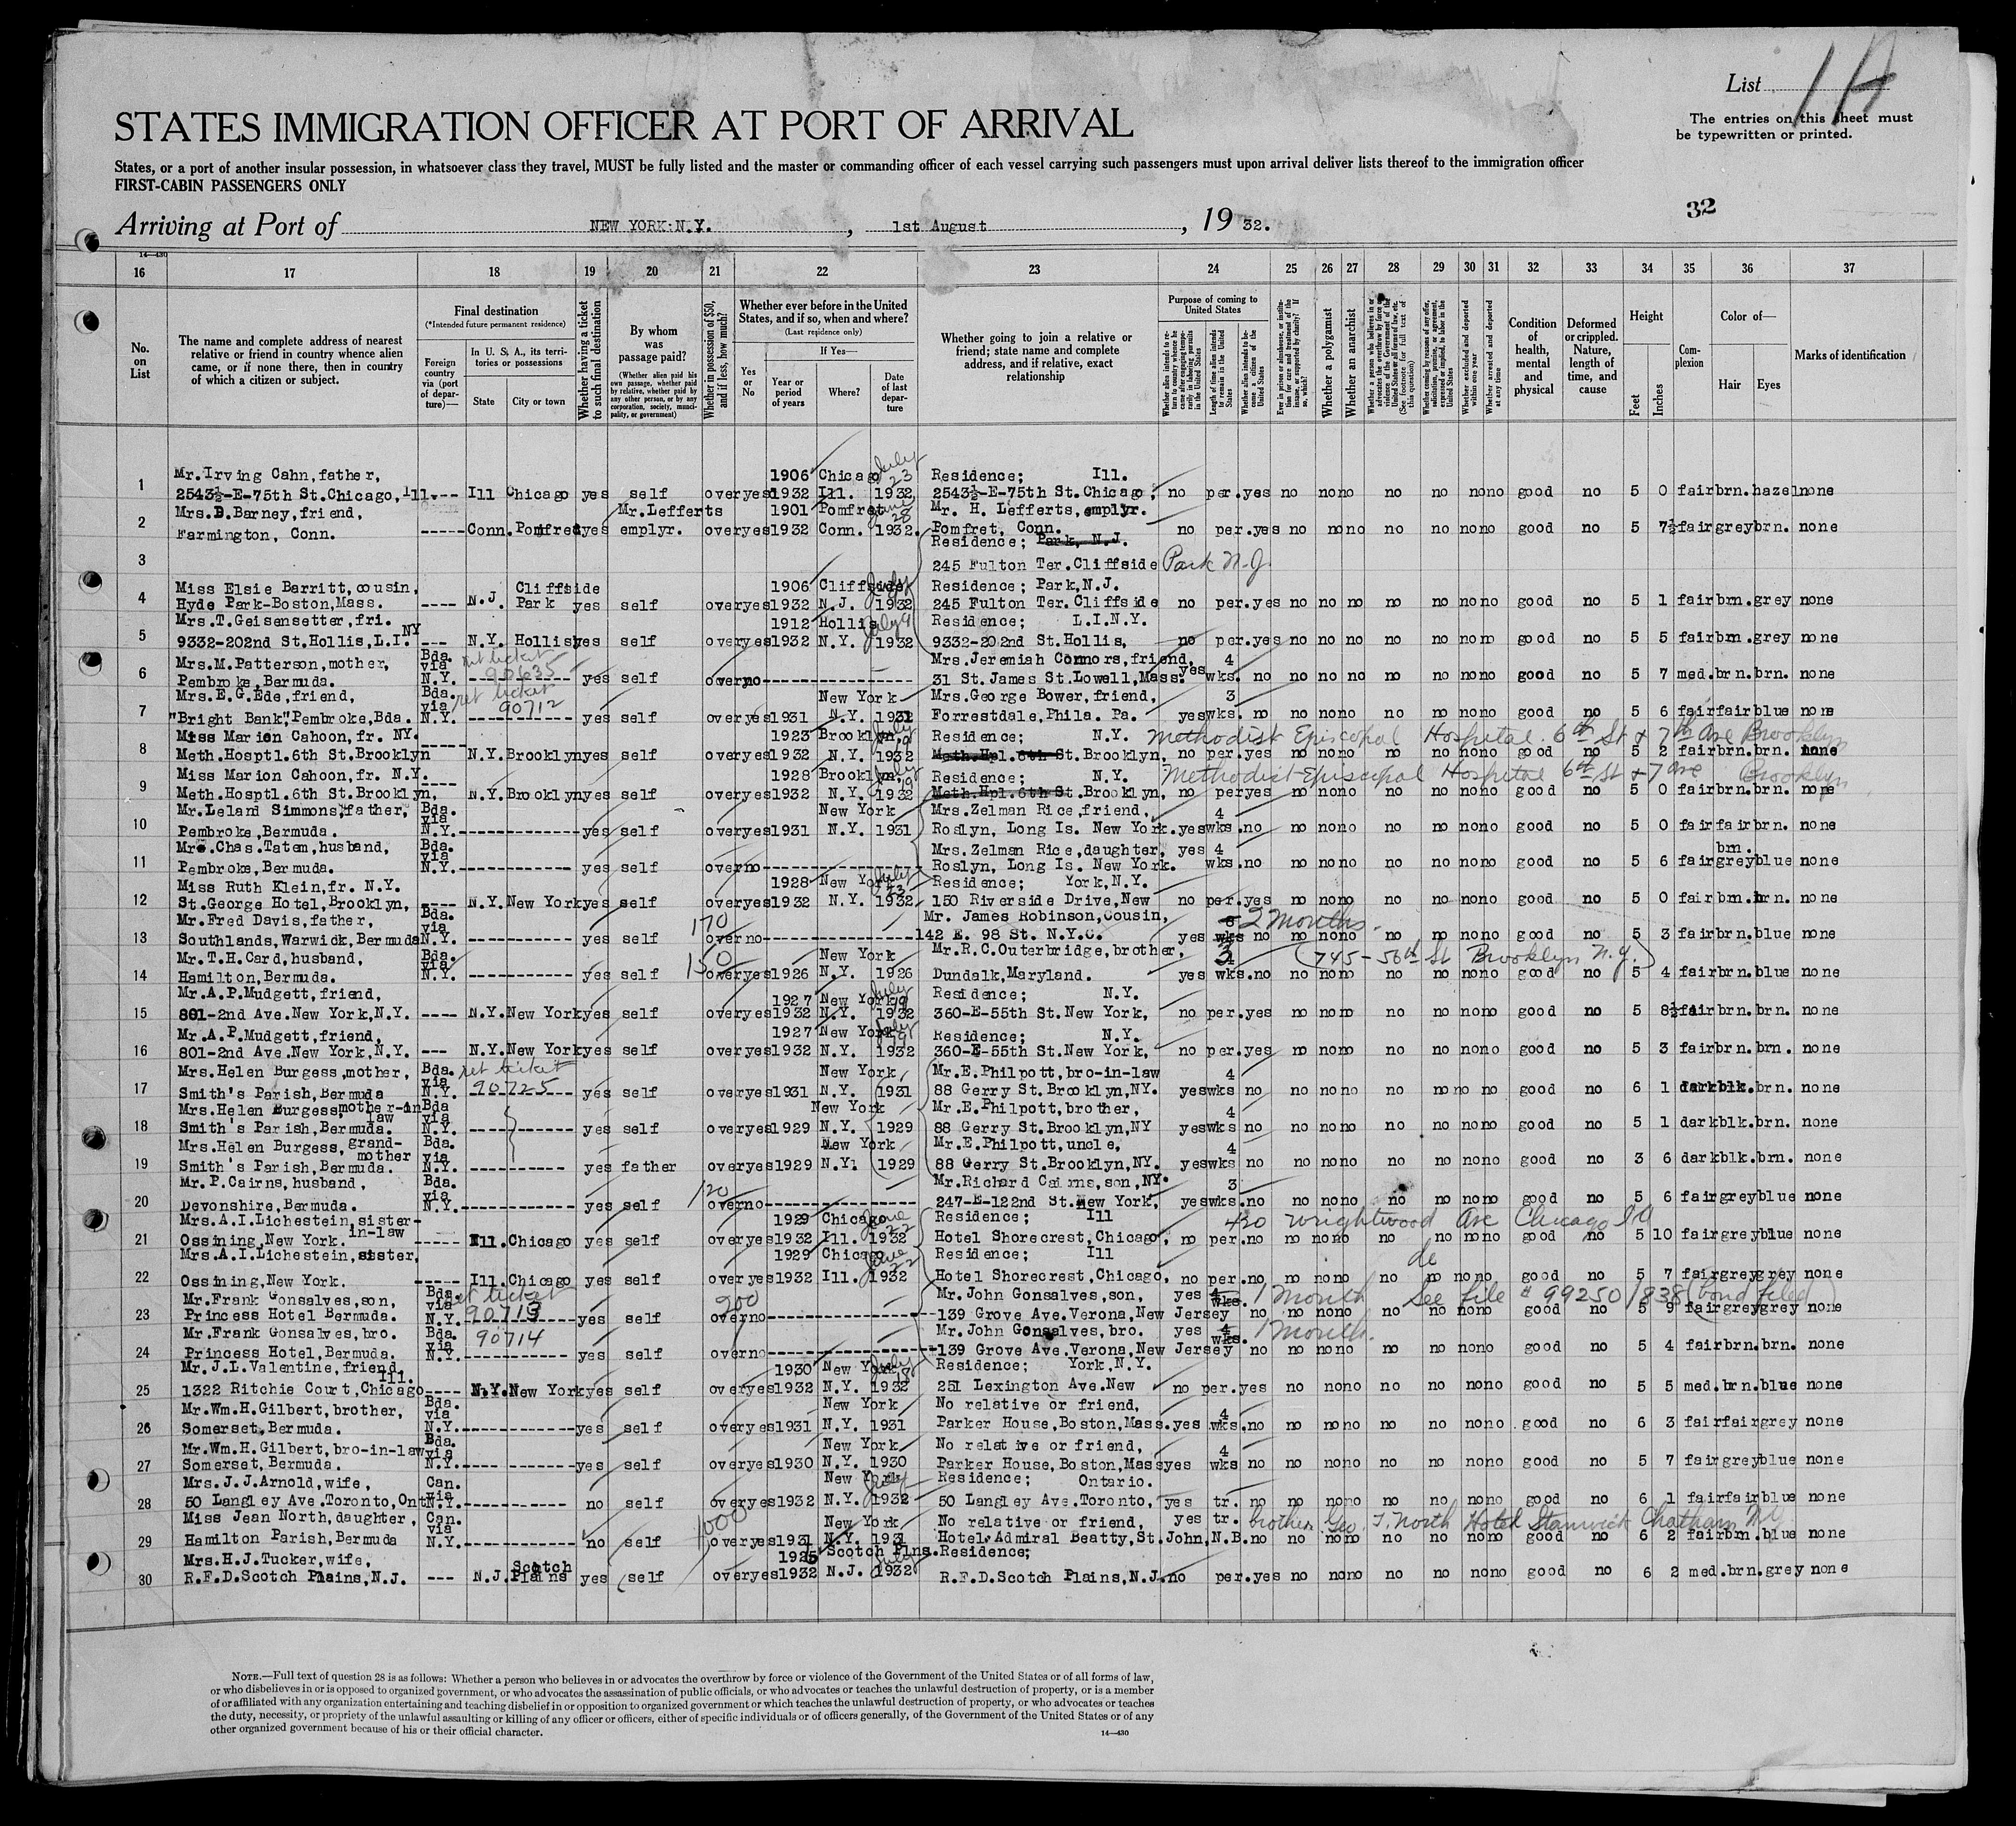 List 1A
The entries on this sheet must
be typewritten or printed.
STATES IMMIGRATION OFFICER AT PORT OF ARRIVAL
States, or a port of another insular possession, in whatsoever class they travel, MUST be fully listed and the master or commanding officer of each vessel carrying such passengers must upon arrival deliver lists thereof to the immigration officer
FIRST-CABIN PASSENGERS ONLY
32
Arriving at Port of NEW YORK N.Y. , 1st August , 19 32.
14—430
16 17 18 19 20 21 22 23 24 25 26 27 28 29 30 31 32 33 34 35 36 37
No. on List
The name and complete address of nearest relative or friend in country whence alien came, or if none there, then in country of which a citizen or subject.
Final destination
(*Intended future permanent residence)
Foreign country via (port of departure)—
In U. S. A., its territories or possessions
State City or town
Whether having a ticket to such final destination
By whom was passage paid?
(Whether alien paid his own passage, whether paid by relative, whether paid by any other person, or by any corporation, society, municipality, or government)
Whether in possession of $50, and if less, how much?
Whether ever before in the United States, and if so, when and where?
(Last residence only)
Yes or No
If Yes—
Year or period of years Where? Date of last departure
Whether going to join a relative or friend; state name and complete address, and if relative, exact relationship
Purpose of coming to United States
Length of time alien intends to remain in the United States
Whether alien intends to become a citizen of the United States
Whether a polygamist
Whether an anarchist
Whether excluded and deported within one year
Whether arrested and deported at any time
Condition of health, mental and physical
Deformed or crippled. Nature, length of time, and cause
Height
Feet Inches
Complexion
Color of—
Hair Eyes
Marks of identification
Mr. Irving Cahn, father, 1906 Chicago July 23 Residence; Ill.
1 2543½-E-75th St.Chicago, Ill. --- Ill Chicago yes self over yes 1932 Ill. 1932 2543½-E-75th St.Chicago, no per. yes no no no no no no no good no 5 0 fair brn. hazel none
Mrs.D.Barney, friend, Mr.Lefferts 1901 Pomfret 28 Mr. H. Lefferts, emplyr.
2 Farmington, Conn. ----- Conn. Pomfret yes emplyr. over yes 1932 Conn. 1932. Pomfret, Conn. no per. yes no no no no no no no good no 5 7½ fair grey brn. none
Residence; Park, N.J.
3 245 Fulton Ter.Cliffside Park N.J.
Miss Elsie Barritt, cousin, Cliffside 1906 Cliffside July Residence; Park,N.J.
4 Hyde Park-Boston,Mass. ---- N.J. Park yes self over yes 1932 N.J. 1932 245 Fulton Ter.Cliffside no per. yes no no no no no no no good no 5 1 fair brn. grey none
Mrs.T.Geisensetter, fri. NY 1912 Hollis July 9 Residence; L.I.N.Y.
5 9332-202nd St.Hollis,L.I. --- N.Y. Hollis yes self over yes 1932 N.Y. 1932 9332-202nd St.Hollis, no per. yes no no no no no no no good no 5 5 fair brn. grey none
Mrs.M.Patterson,mother, Bda. via ret ticket 90635 Mrs.Jeremiah Connors,friend, 4
6 Pembroke,Bermuda. N.Y. yes self over no 31 St.James St.Lowell,Mass. yes wks. no no no no no no no no good no 5 7 med. brn. brn. none
Mrs.E.G.Ede,friend, Bda. via ret ticket 90712 New York Mrs.George Bower,friend, 3
7 "Bright Bank" Pembroke,Bda. N.Y. yes self over yes 1931 N.Y. 1931 Forrestdale,Phila. Pa. yes wks. no no no no no no no no good no 5 6 fair fair blue none
Miss Marion Cahoon,fr. NY. 1923 Brooklyn, July 9 Residence; N.Y. Methodist Episcopal Hospital. 6th St & 7th Ave Brooklyn
8 Meth.Hosptl.6th St.Brooklyn ----- N.Y. Brooklyn yes self over yes 1932 N.Y. 1932 Meth.Hpl.6th St.Brooklyn, no per. yes no no no no no no no good no 5 2 fair brn. brn. none
Miss Marion Cahoon,fr. N.Y. 1928 Brooklyn, July 9 Residence; N.Y. Methodist Episcopal Hospital 6th St & 7 Ave Brooklyn
9 Meth.Hosptl.6th St.Brooklyn, ---- N.Y. Brooklyn yes self over yes 1932 N.Y. 1932 Meth.Hpl.6th St.Brooklyn, no per yes no no no no no no no good no 5 0 fair brn. brn. none
Mr.Leland Simmons,father, Bda. via New York Mrs.Zelman Rice,friend, 4
10 Pembroke,Bermuda. N.Y. yes self over yes 1931 N.Y. 1931 Roslyn, Long Is. New York. yes wks. no no no no no no no no good no 5 0 fair fair brn. none
Mr.Chas.Tatem,husband, Bda. via Mrs.Zelman Rice,daughter, yes 4 brn.
11 Pembroke,Bermuda. N.Y. yes self over no Roslyn, Long Is. New York. wks. no no no no no no no no good no 5 6 fair grey blue none
Miss Ruth Klein,fr. N.Y. 1928 New York July 23 Residence; York,N.Y.
12 St.George Hotel,Brooklyn, ---- N.Y. New York yes self over yes 1932 N.Y. 1932 150 Riverside Drive,New no per. yes no no no no no no no good no 5 0 fair brn. brn. none
Mr.Fred Davis,father, Bda. via 170 Mr. James Robinson,Cousin, 2 months.
13 Southlands,Warwick,Bermuda N.Y. yes self over no 142 E. 98 St. N.Y.C. yes wks no no no no no no no no good no 5 3 fair brn. blue none
Mr.T.H.Card,husband, Bda. via 150 New York Mr.R.C.Outerbridge,brother, 3 (745-56th St Brooklyn N.Y.)
14 Hamilton,Bermuda. N.Y. yes self over yes 1926 N.Y. 1926 Dundalk,Maryland. yes wks. no no no no no no no no good no 5 4 fair brn. blue none
Mr.A.P.Mudgett,friend, 1927 New York July 9 Residence; N.Y.
15 801-2nd Ave.New York,N.Y. ---- N.Y. New York yes self over yes 1932 N.Y. 1932 360-E-55th St.New York, no per. yes no no no no no no no good no 5 8½ fair brn. brn. none
Mr.A.P.Mudgett,friend, 1927 New York July 9 Residence; N.Y.
16 801-2nd Ave.New York,N.Y. --- N.Y. New York yes self over yes 1932 N.Y. 1932 360-E-55th St.New York, no per. yes no no no no no no no good no 5 3 fair brn. brn. none
Mrs.Helen Burgess,mother, Bda. via ret ticket 90725 New York Mr.E.Philpott,bro-in-law 4
17 Smith's Parish,Bermuda N.Y. yes self over yes 1931 N.Y. 1931 88 Gerry St.Brooklyn,NY. yes wks no no no no no no no no good no 6 1 dark blk. brn. none
Mrs.Helen Burgess,mother-in law Bda via New York Mr.E.Philpott,brother, 4
18 Smith's Parish,Bermuda. N.Y. yes self over yes 1929 N.Y. 1929 88 Gerry St.Brooklyn,NY yes wks no no no no no no no no good no 5 1 dark blk. brn. none
Mrs.Helen Burgess,grand-mother Bda. via New York Mr.E.Philpott,uncle, 4
19 Smith's Parish,Bermuda. N.Y. yes father over yes 1929 N.Y. 1929 88 Gerry St.Brooklyn,NY. yes wks no no no no no no no no good no 3 6 dark blk. brn. none
Mr.P.Cairns,husband, Bda. via 120 Mr.Richard Cairns,son,NY. 3
20 Devonshire,Bermuda. N.Y. yes self over no 247-E-122nd St.New York, yes wks. no no no no no no no no good no 5 6 fair grey blue none
Mrs.A.I.Lichestein,sister-in-law 1929 Chicago June 22 Residence; Ill 420 Wrightwood Ave Chicago Ill
21 Ossining,New York. ----- Ill. Chicago yes self over yes 1932 Ill. 1932 Hotel Shorecrest,Chicago, no per. no no no no no no no no good no 5 10 fair grey blue none
Mrs.A.I.Lichestein,sister, 1929 Chicago June 22 Residence; Ill do
22 Ossining,New York. ----- Ill. Chicago yes self over yes 1932 Ill. 1932 Hotel Shorecrest,Chicago, no per. no no no no no no no no good no 5 7 fair grey grey none
Mr.Frank Gonsalves,son, Bda. via ret ticket 90713 200 Mr.John Gonsalves,son, yes 4 wks. 1 month See file # 99250/838 (bond filed)
23 Princess Hotel Bermuda. N.Y. yes self over no 139 Grove Ave.Verona,New Jersey no no no no no no no no good no 5 9 fair grey grey none
Mr.Frank Gonsalves,bro. Bda. via 90714 Mr.John Gonsalves,bro. yes 4 wks. 1 month.
24 Princess Hotel,Bermuda. N.Y. yes self over no 139 Grove Ave.Verona,New Jersey no no no no no no no no good no 5 4 fair brn. brn. none
Mr.J.L.Valentine,friend, Ill. 1930 New York July 18 Residence; York,N.Y.
25 1322 Ritchie Court,Chicago ---- N.Y. New York yes self over yes 1932 N.Y. 1932 251 Lexington Ave.New no per. yes no no no no no no no good no 5 5 med. brn. blue none
Mr.Wm.H.Gilbert,brother, Bda. via New York No relative or friend,
26 Somerset,Bermuda. N.Y. yes self over yes 1931 N.Y. 1931 Parker House,Boston,Mass. yes 4 wks. no no no no no no no no good no 6 3 fair fair grey none
Mr.Wm.H.Gilbert,bro-in-law Bda. via New York No relative or friend, 4
27 Somerset,Bermuda. N.Y. yes self over yes 1930 N.Y. 1930 Parker House,Boston,Mass yes wks no no no no no no no no good no 5 7 fair grey blue none
Mrs.J.J.Arnold,wife, Can. via New York July Residence; Ontario.
28 50 Langley Ave.Toronto,Ont N.Y. no self over yes 1932 N.Y. 1932 50 Langley Ave.Toronto, yes tr. no no no no no no no no good no 6 1 fair fair blue none
Miss Jean North,daughter, Can. via 1000 New York No relative or friend, yes tr. brother Geo. T. North Hotel Stanwick Chatham N.Y.
29 Hamilton Parish,Bermuda N.Y. no self over yes 1931 N.Y. 1931 Hotel Admiral Beatty,St.John,N.B. no no no no no no no no good no 6 2 fair brn. blue none
Mrs.H.J.Tucker,wife, Scotch 1925 Scotch Plns. July Residence;
30 R.F.D.Scotch Plains,N.J. --- N.J. Plains yes self over yes 1932 N.J. 1932 R.F.D.Scotch Plains,N.J. no per. yes no no no no no no no good no 6 2 med. brn. grey none
NOTE.—Full text of question 28 is as follows: Whether a person who believes in or advocates the overthrow by force or violence of the Government of the United States or of all forms of law,
or who disbelieves in or is opposed to organized government, or who advocates the assassination of public officials, or who advocates or teaches the unlawful destruction of property, or is a member
of or affiliated with any organization entertaining and teaching disbelief in or opposition to organized government or which teaches the unlawful destruction of property, or who advocates or teaches
the duty, necessity, or propriety of the unlawful assaulting or killing of any officer or officers, either of specific individuals or of officers generally, of the Government of the United States or of any
other organized government because of his or their official character.
14—430